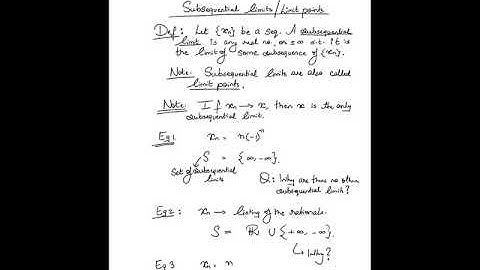 Subsequential limits/Limit points
Def: Let {xn} be a seq. A subsequential
limit is any real no. or ±∞ s.t. it is
the limit of some subsequence of {xn}.
Note: Subsequential limits are also called
limit points.
Note: If xn → x, then x is the only
subsequential limit.
Eg 1 xn = n(-1)^n
S = {∞, -∞}.
Set of subsequential
limits
Q: Why are there no other
subsequential limits?
Eg 2: xn → listing of the rationals.
S = ℝ ∪ {+∞, -∞}.
↳ Why?
Eg 3 xn = n